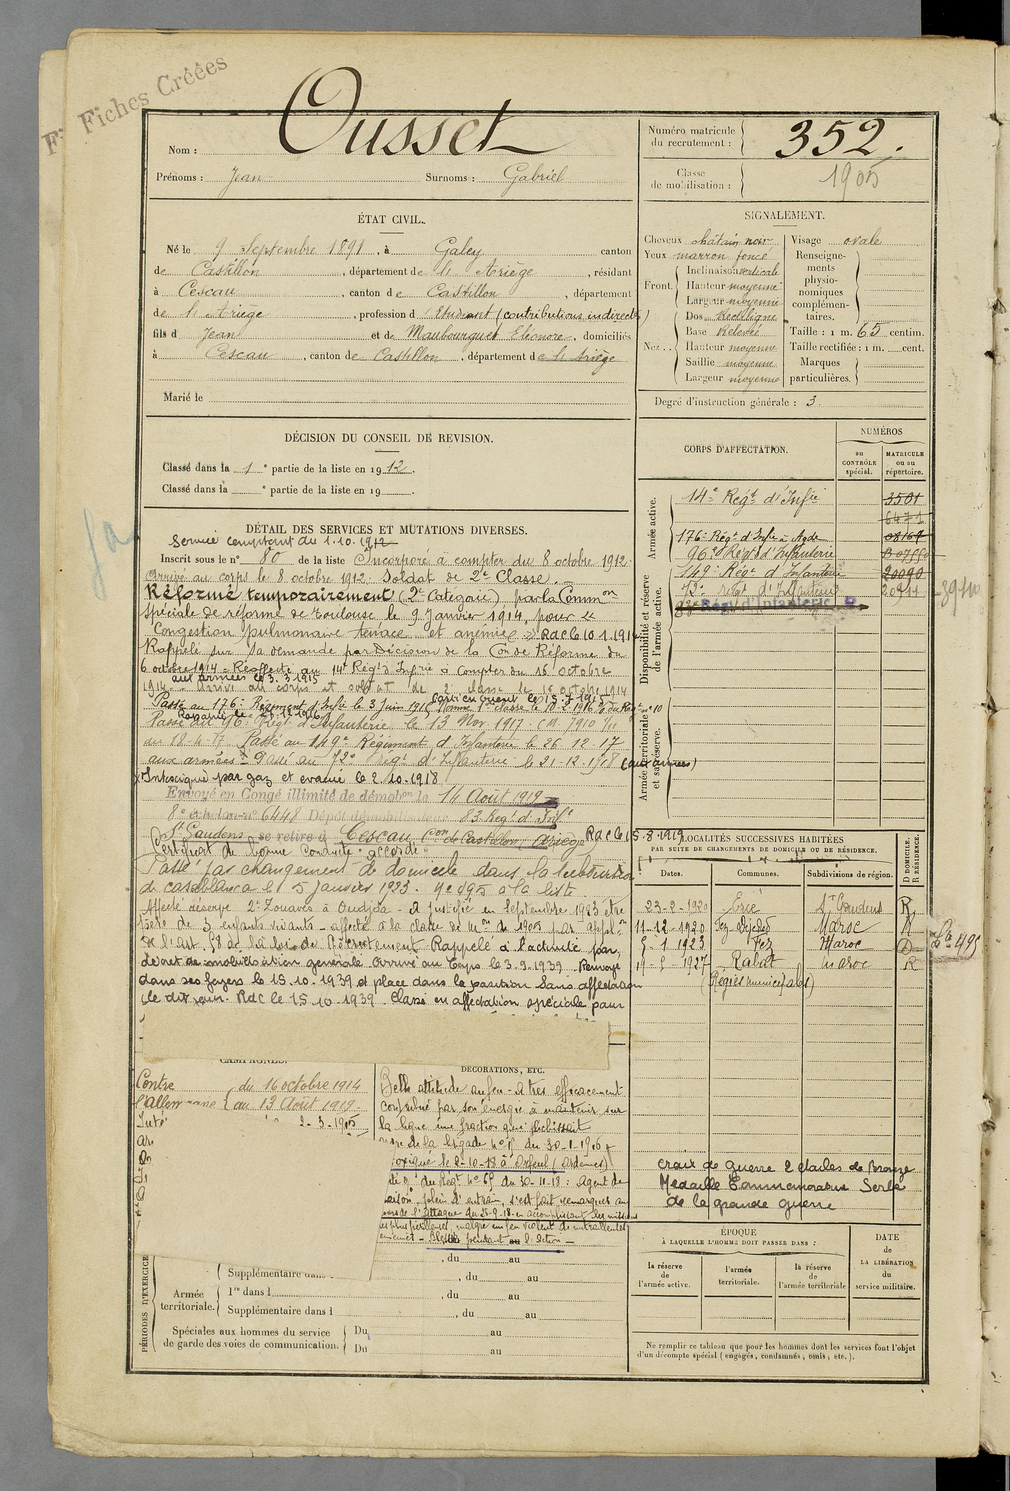 Fiches Créées
Nom : Ousset
Prénoms : Jean Surnoms : Gabriel
Numéro matricule du recrutement : 352.
Classe de mobilisation : 1905
ÉTAT CIVIL.
Né le 9 Septembre 1891, à Galey canton
de Castillon, département de l'Ariège, résidant
à Cescau, canton de Castillon, département
de l'Ariège, profession d'Etudiant (contributions indirectes)
fils d Jean et de Maubourguet Eléonore, domiciliés
à Cescau, canton de Castillon, département de l'Ariège
Marié le
SIGNALEMENT.
Cheveux châtain noir
Yeux marron foncé
Front. Inclinaison verticale
Hauteur moyenne
Largeur moyenne
Nez. Dos rectiligne
Base relevée
Hauteur moyenne
Saillie moyenne
Largeur moyenne
Visage ovale
Renseignements physionomiques complémentaires.
Taille : 1 m. 65 centim.
Taille rectifiée : 1 m. cent.
Marques particulières.
Degré d'instruction générale : 3
DÉCISION DU CONSEIL DE REVISION.
Classé dans la 1e partie de la liste en 1912.
Classé dans la e partie de la liste en 19 .
CORPS D'AFFECTATION.
NUMÉROS
au CONTRÔLE spécial.
MATRICULE ou au répertoire.
Armée active.
14e Regt d'Infie 3501
6471
176e Régt d'Infie à Agde
96e Régt d'Infanterie
149e Régt d'Infanterie 20090
72e regt d'Infanterie
Régt d'Infanterie
Disponibilité et réserve de l'armée active.
Armée territoriale et sa réserve.
DÉTAIL DES SERVICES ET MUTATIONS DIVERSES.
Service comptant du 1.10.1912
Inscrit sous le n° 80 de la liste Incorporé à compter du 8 octobre 1912.
Arrivé au corps le 8 octobre 1912. Soldat de 2e Classe.
Réformé temporairement (2e Catégorie), par la Common
spéciale de réforme de Toulouse le 9 Janvier 1914, pour
Congestion pulmonaire tenace et anémie. RdC le 10.1.1914
Rappelé sur sa demande par Décision de la Con de Réforme du
6 octobre 1914. Réaffecté au 14e Régt d'Infie à compter du 16 octobre
aux armées le 3.3.1915
1914. Arrivé au corps et soldat de 2e classe le 16 octobre 1914
Parti en orient le 15.7.1915
Passé au 176e Régiment d'Infie le 3 Juin 1915. Nommé 1e classe le 10.2.1916
Passé au 96e Régt d'Infanterie le 13 Nov. 1917. CM 1910 1/11
du 18-4-17 Passé au 149e Régiment d'Infanterie le 26-12-17
aux armées Passé au 72e Regt d'Infanterie le 21-12-1918 (aux armées)
Intoxiqué par gaz et évacué le 2.10.1918
Envoyé en Congé illimité de démobon le 14 Août 1919
8e échelon n° 6448 Dépôt démobilisateur 83 Regt d'Infie
St Gaudens se retire à Cescau Con de Castillon, Ariège RdC le 15.8.1919
Certificat de bonne conduite "accordé"
Passé par changement de domicile dans la subdivision
de casablanca le 5 Janvier 1923. n° 895 à la liste
Affecté réserve 2e Zouaves à Oudjda. A justifié en Septembre 1923 être
père de 3 enfants vivants. affecté à la classe de Mon de 1905 par applon
de l'art. 58 de la loi de Recrutement. Rappelé à l'activité par
décret de mobilisation générale. Arrivé au Corps le 3.9.1939. Renvoyé
dans ses foyers le 15.10.1939 et placé dans la position Sans affectation
le dit jour. RdC le 15.10.1939. Classé en affectation spéciale pour
LOCALITÉS SUCCESSIVES HABITÉES
PAR SUITE DE CHANGEMENTS DE DOMICILE OU DE RÉSIDENCE.
Dates. Communes. Subdivisions de région. D DOMICILE. R RÉSIDENCE.
23-2-1920 St Gaudens R
11-12-1920 Fez Maroc R
5-1 1923 Fez Maroc D
19-5-1927 Rabat Maroc R
(Régies municipales)
CAMPAGNES.
Contre l'allemagne du 16 octobre 1914
au 13 Août 1919.
2-3-1915
DÉCORATIONS, ETC.
Belle attitude au feu. A très efficacement
contribué par son énergie à maintenir sur
la ligne une fraction qui fléchissait
ordre de la brigade du 30-1-1916
toxiqué le 2-10-18 à Orfeuil (ardennes)
du Regt n° 65 du 30-10-18 : Agent de
liaison plein d'entrain, s'est fait remarquer au
cours de l'attaque du 26-9-18 en accomplissant les missions
les plus périlleuses malgré un feu violent de mitrailleuses
Blessé pendant l'action
croix de guerre 2 étoiles de Bronze
Médaille Commémorative Serbe
de la grande guerre
PÉRIODES D'EXERCICE
Supplémentaire dans , du au
Armée territoriale. 1re dans l , du au
Supplémentaire dans l , du au
Spéciales aux hommes du service de garde des voies de communication. Du au
Du au
ÉPOQUE
À LAQUELLE L'HOMME DOIT PASSER DANS :
la réserve de l'armée active.
l'armée territoriale.
la réserve de l'armée territoriale
DATE de LA LIBÉRATION du service militaire.
Ne remplir ce tableau que pour les hommes dont les services font l'objet
d'un décompte spécial (engagés, condamnés, omis, etc.).